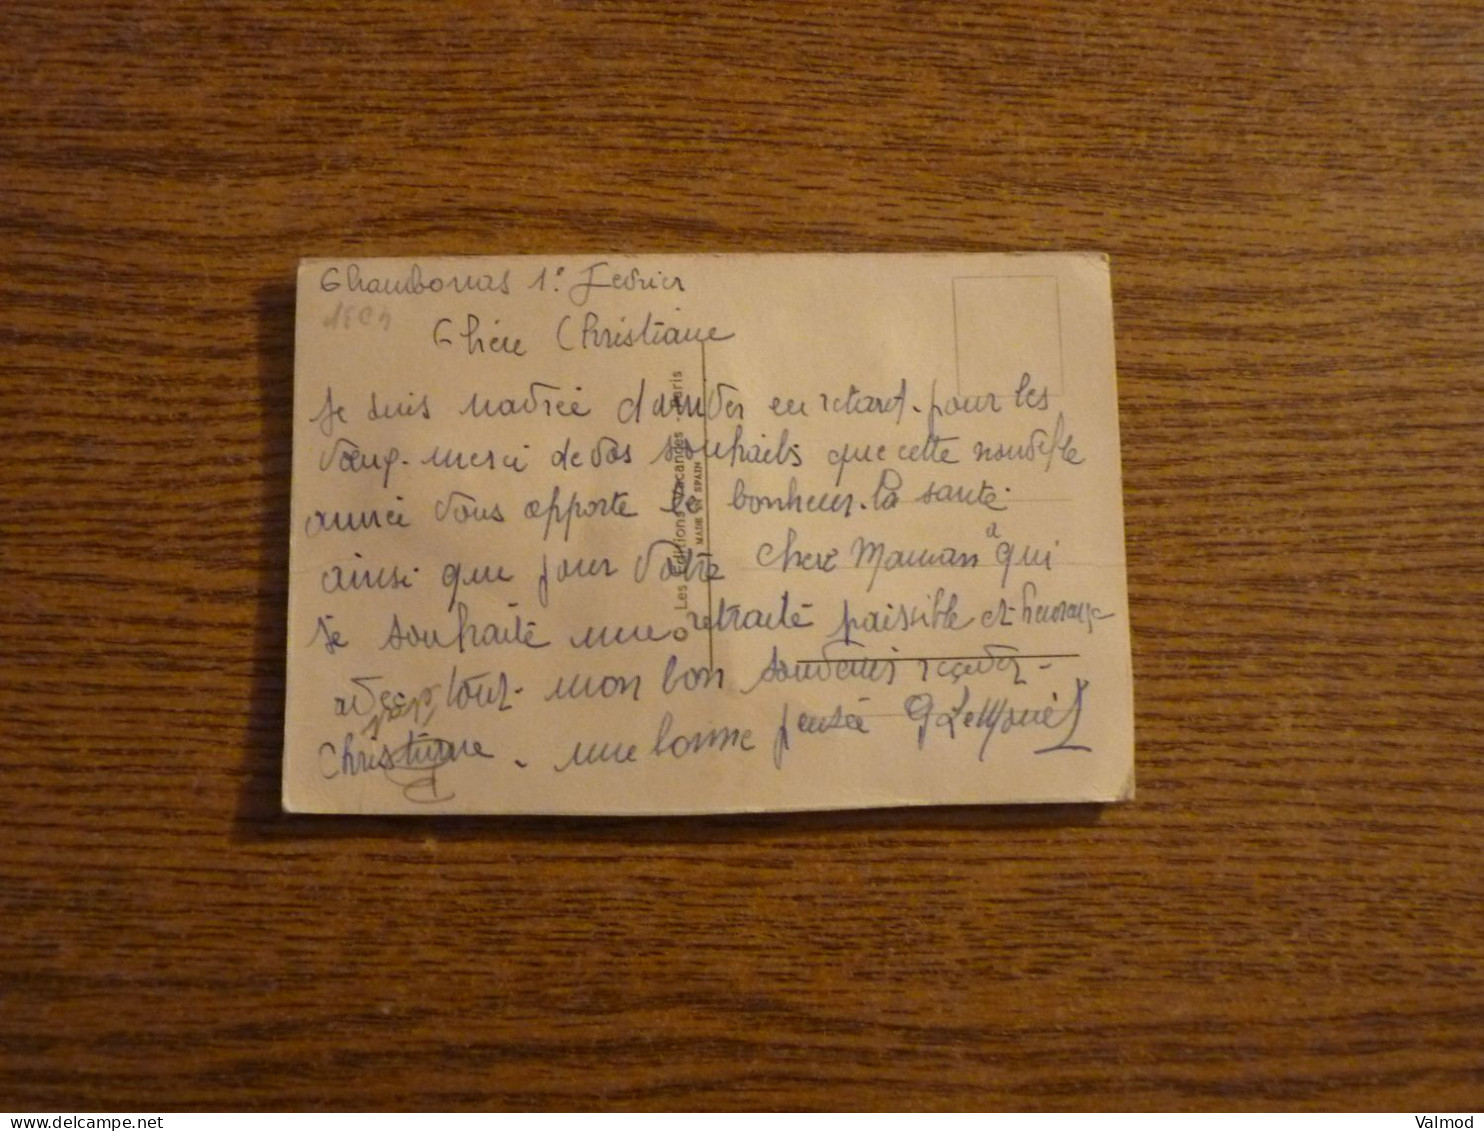 Chambonas 1° Fevrier
Chère Christiane
Je suis navrée d'arriver en retard. pour les
vœux. merci de vos souhaits que cette nouvelle
année vous apporte le bonheur. la santé.
ainsi que pour votre chère Maman à qui
je souhaite une retraite paisible et heureuse
avec tout mon bon souvenir recevez
Christiane. une bonne pensée
Les Editions Vacances - Paris
MADE IN SPAIN
www.delcampe.net
Valmod